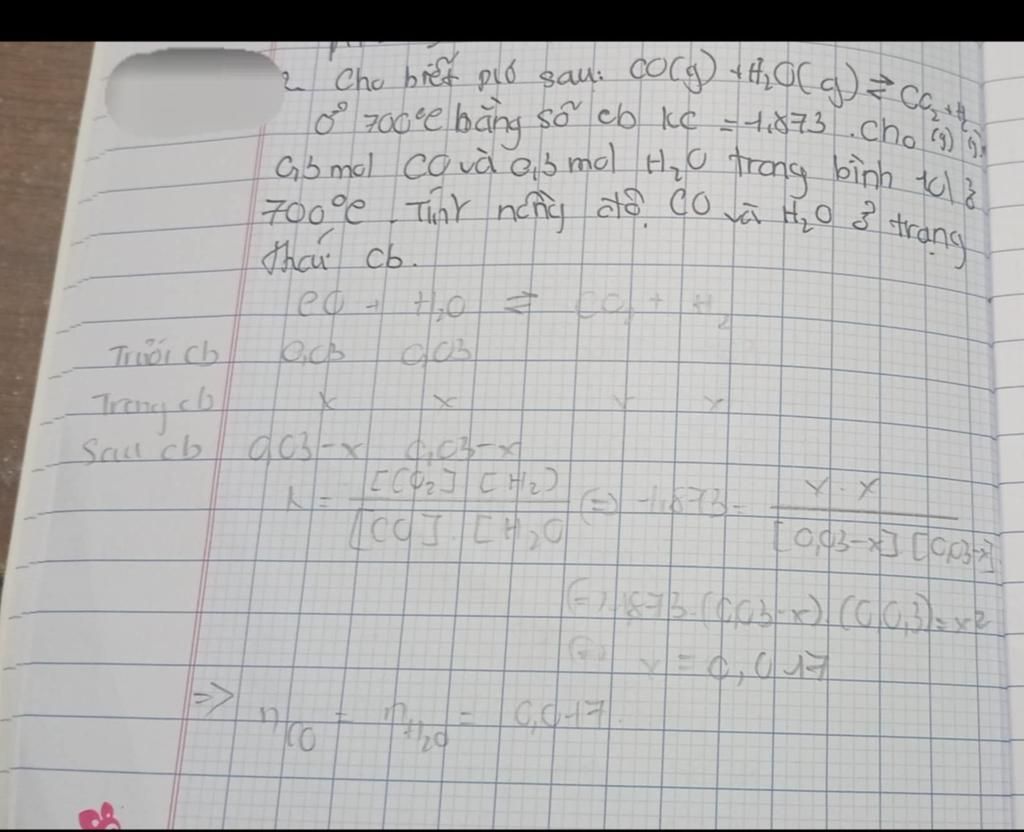 2. Cho biết pứ sau: CO(g) + H₂O(g) ⇌ CO₂ + H₂
(g) (g)
Ở 700°C hằng số cb KC = 1,873. Cho
0,3 mol CO và 0,3 mol H₂O trong bình 10l ở
700°C. Tính nồng độ CO và H₂O ở trạng
thái cb.
CO + H₂O ⇌ CO₂ + H₂
Trước cb 0,03 0,03
Trong cb x x x x
Sau cb 0,03-x 0,03-x
K = [CO₂] [H₂] / [CO] . [H₂O (=) 1,873 = x . x / [0,03-x] [0,03-x]
(=) 1,873 . (0,03-x) . (0,0,3) = x²
(=) x = 0,017
=> nCO = nH₂O = 0,017